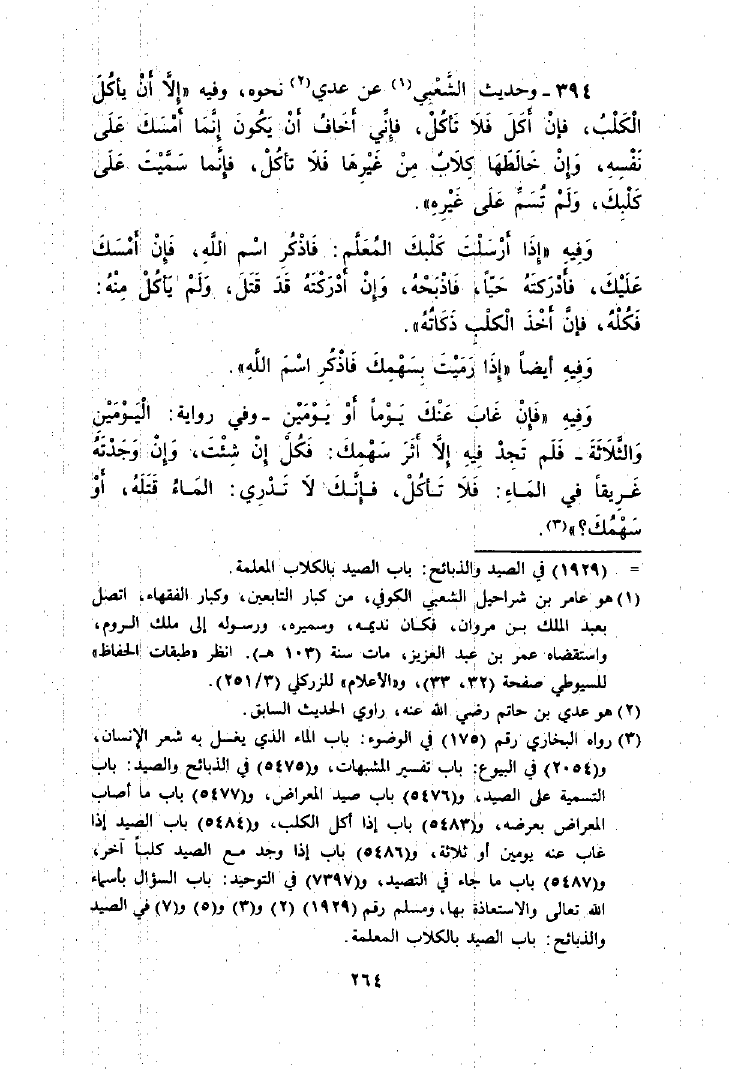 ٣٩٤ ـ وحديث الشَّعْبِي(١) عن عدي(٢) نحوه، وفيه «إِلَّا أَنْ يأكُلَ
الْكَلْبُ، فإنْ أَكَلَ فَلَا تَأْكُلْ، فَإِنِّي أَخَافُ أَنْ يَكُونَ إِنَّمَا أَمْسَكَ عَلَى
نَفْسِهِ، وَإِنْ خَالَطَهَا كِلَابٌ مِنْ غَيْرِهَا فَلَا تأكُلْ، فَإنَّما سَمَّيْتَ عَلَى
كَلْبِكَ، وَلَمْ تُسَمِّ عَلَى غَيْرِهِ».
وَفِيهِ «إِذَا أَرْسَلْتَ كَلْبَكَ المُعَلَّم: فَاذْكُرِ اسْم اللَّهِ، فَإِنْ أَمْسَكَ
عَلَيْكَ، فَأَدْرَكْتَهُ حَيّاً، فَاذْبَحْهُ، وَإِنْ أَدْرَكْتَهُ قَدْ قَتَلَ، وَلَمْ يَأكُلْ مِنْهُ:
فَكُلْهُ، فإنَّ أَخْذَ الْكَلْبِ ذَكَاتُهُ».
وَفِيهِ أيضاً «إِذَا رَمَيْتَ بِسَهْمِكَ فَاذْكُرِ اسْمَ اللَّهِ».
وَفِيهِ «فَإِنْ غَابَ عَنْكَ يَوْماً أَوْ يَوْمَيْنِ ـ وفي رواية: الْيَوْمَيْنِ
وَالثَّلَاثَةَ ـ فَلَم تَجِدْ فِيهِ إِلَّا أَثَرَ سَهْمِكَ: فَكُلْ إِنْ شِئْتَ، وَإِنْ وَجَدْتَهُ
غَرِيقاً في المَاءِ: فَلَا تَأكُلْ، فَإِنَّكَ لَا تَدْرِي: المَاءُ قَتَلَهُ، أَوْ
سَهْمُكَ؟»(٣).
= (١٩٢٩) في الصيد والذبائح: باب الصيد بالكلاب المعلمة.
(١) هو عامر بن شراحيل الشعبي الكوفي، من كبار التابعين، وكبار الفقهاء، اتصل
بعبد الملك بن مروان، فكان نديمه، وسميره، ورسوله إلى ملك الروم،
واستقضاه عمر بن عبد العزيز، مات سنة (١٠٣ هـ). انظر «طبقات الحفاظ»
للسيوطي صفحة (٣٢، ٣٣)، و«الأعلام» للزركلي (٣/٢٥١).
(٢) هو عدي بن حاتم رضي الله عنه، راوي الحديث السابق.
(٣) رواه البخاري رقم (١٧٥) في الوضوء: باب الماء الذي يغسل به شعر الإنسان،
و(٢٠٥٤) في البيوع: باب تفسير المشبهات، و(٥٤٧٥) في الذبائح والصيد: باب
التسمية على الصيد، و(٥٤٧٦) باب صيد المعراض، و(٥٤٧٧) باب ما أصاب
المعراض بعرضه، و(٥٤٨٣) باب إذا أكل الكلب، و(٥٤٨٤) باب الصيد إذا
غاب عنه يومين أو ثلاثة، و(٥٤٨٦) باب إذا وجد مع الصيد كلباً آخر،
و(٥٤٨٧) باب ما جاء في التصيد، و(٧٣٩٧) في التوحيد: باب السؤال بأسماء
الله تعالى والاستعاذة بها، ومسلم رقم (١٩٢٩) (٢) و(٣) و(٥) و(٧) في الصيد
والذبائح: باب الصيد بالكلاب المعلمة.
٢٦٤